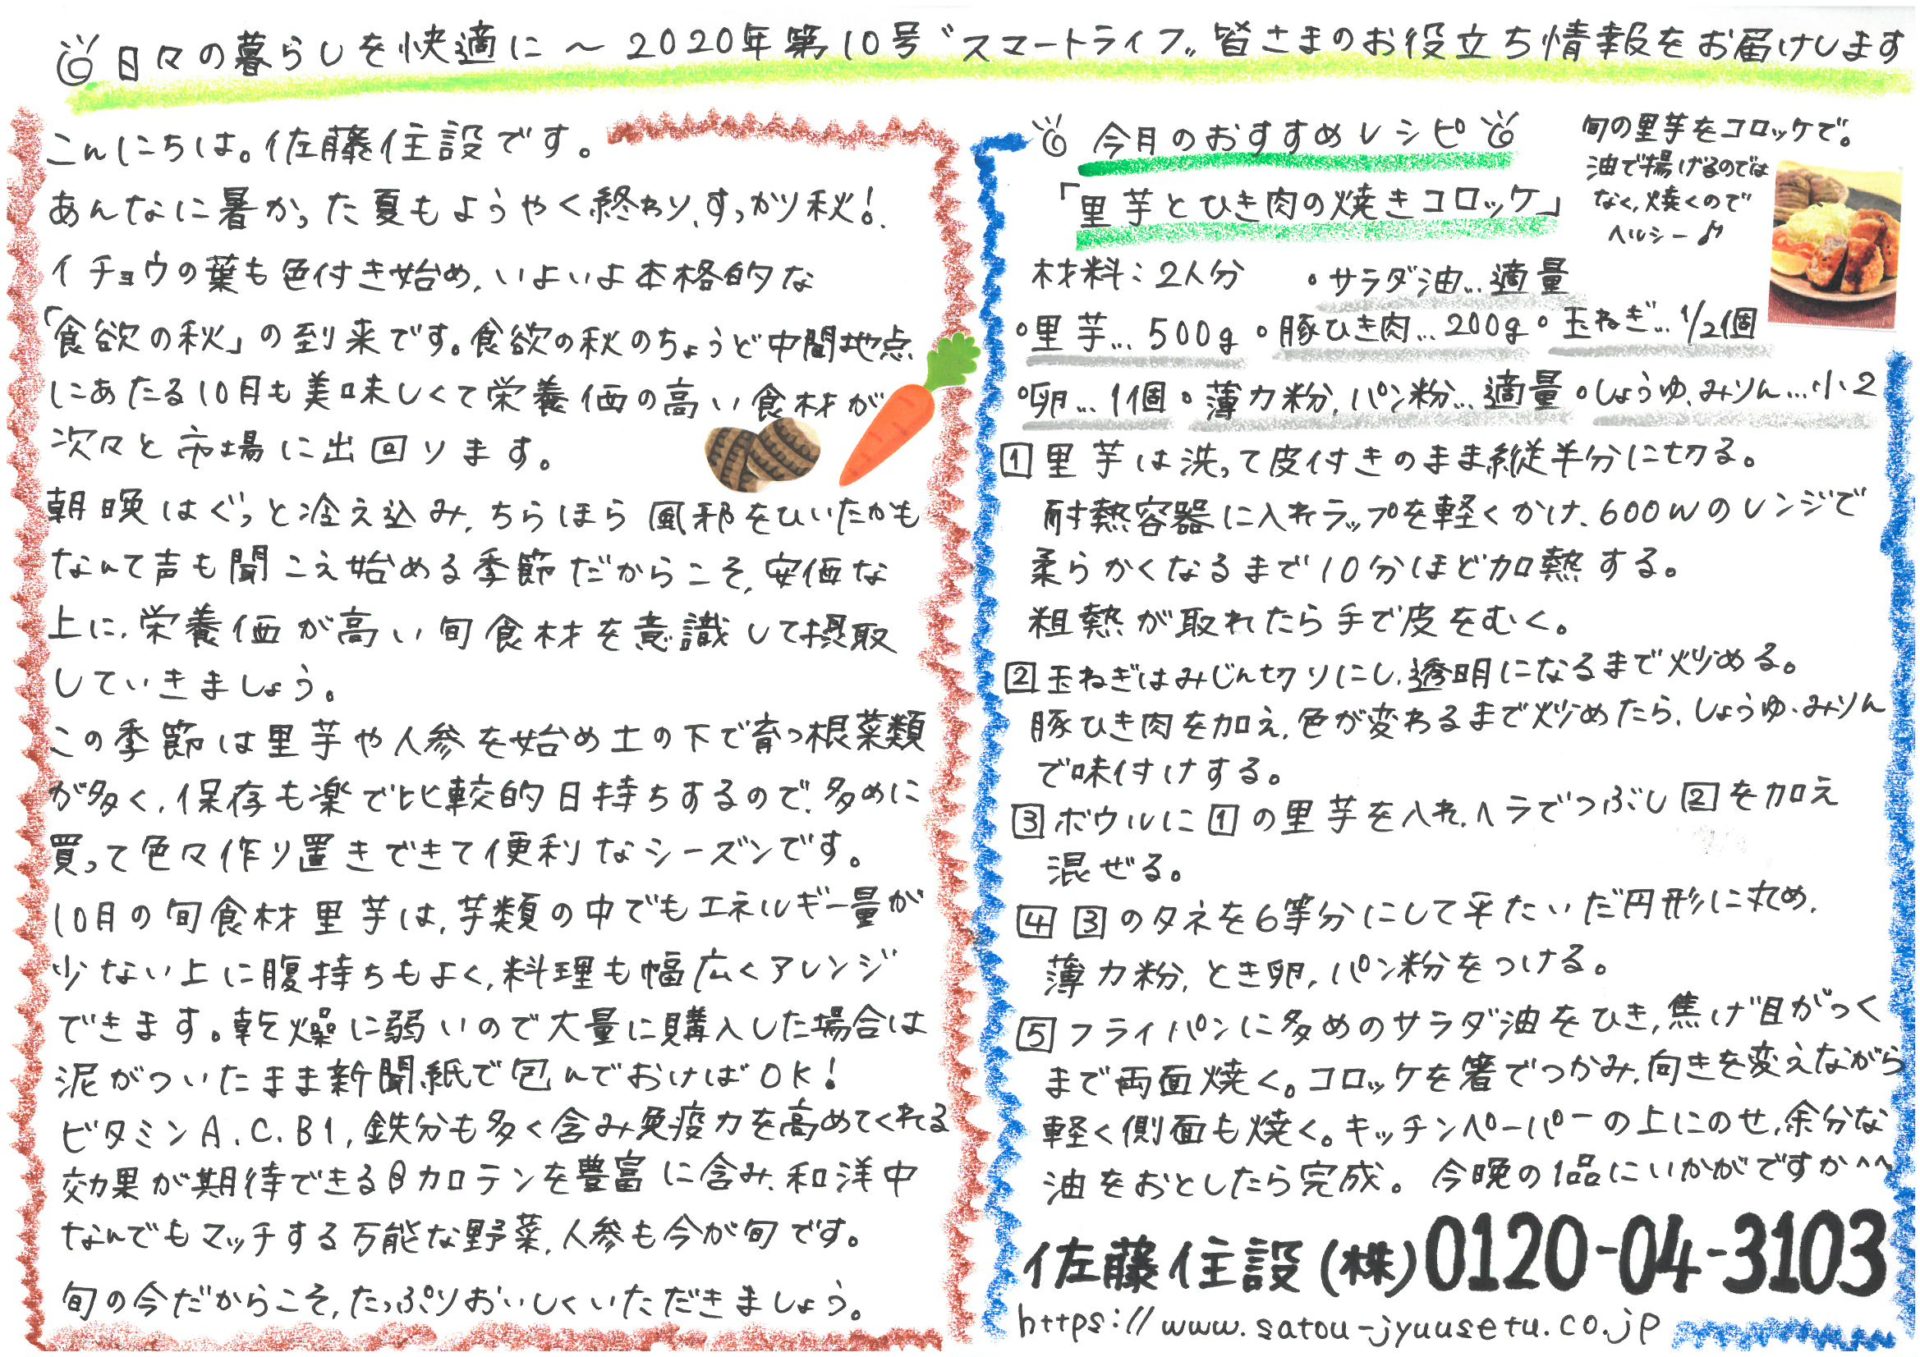 日々の暮らしを快適に～2020年第10号〝スマートライフ〟皆さまのお役立ち情報をお届けします
こんにちは。佐藤住設です。
あんなに暑かった夏もようやく終わり、すっかり秋!
イチョウの葉も色付き始め、いよいよ本格的な
「食欲の秋」の到来です。食欲の秋のちょうど中間地点
にあたる10月も美味しくて栄養価の高い食材が
次々と市場に出回ります。
朝晩はぐっと冷え込み、ちらほら風邪をひいたかも
なんて声も聞こえ始める季節だからこそ、安価な
上に、栄養価が高い旬食材を意識して摂取
していきましょう。
この季節は里芋や人参を始め土の下で育つ根菜類
が多く、保存も楽で比較的日持ちするので、多めに
買って色々作り置きできて便利なシーズンです。
10月の旬食材里芋は、芋類の中でもエネルギー量が
少ない上に腹持ちもよく、料理も幅広くアレンジ
できます。乾燥に弱いので大量に購入した場合は
泥がついたまま新聞紙で包んでおけばOK!
ビタミンA.C.B1,鉄分も多く含み免疫力を高めてくれる
効果が期待できるβカロテンを豊富に含み、和洋中
なんでもマッチする万能な野菜、人参も今が旬です。
旬の今だからこそ、たっぷりおいしくいただきましょう。
今月のおすすめレシピ
「里芋とひき肉の焼きコロッケ」
旬の里芋をコロッケで。
油で揚げるのでは
なく、焼くので
ヘルシー♪
材料:2人分 ・サラダ油…適量
・里芋…500g ・豚ひき肉…200g ・玉ねぎ…1/2個
・卵…1個 ・薄力粉、パン粉…適量 ・しょうゆ、みりん…小2
1 里芋は洗って皮付きのまま縦半分に切る。
耐熱容器に入れラップを軽くかけ、600Wのレンジで
柔らかくなるまで10分ほど加熱する。
粗熱が取れたら手で皮をむく。
2 玉ねぎはみじん切りにし、透明になるまで炒める。
豚ひき肉を加え、色が変わるまで炒めたら、しょうゆ、みりん
で味付けする。
3 ボウルに1の里芋を入れ、ヘラでつぶし2を加え
混ぜる。
4 3のタネを6等分にして平たいだ円形に丸め、
薄力粉、とき卵、パン粉をつける。
5 フライパンに多めのサラダ油をひき、焦げ目がつく
まで両面焼く。コロッケを箸でつかみ、向きを変えながら
軽く側面も焼く。キッチンペーパーの上にのせ、余分な
油をおとしたら完成。今晩の1品にいかがですか^^
佐藤住設(株)0120-04-3103
https://www.satou-jyuusetu.co.jp